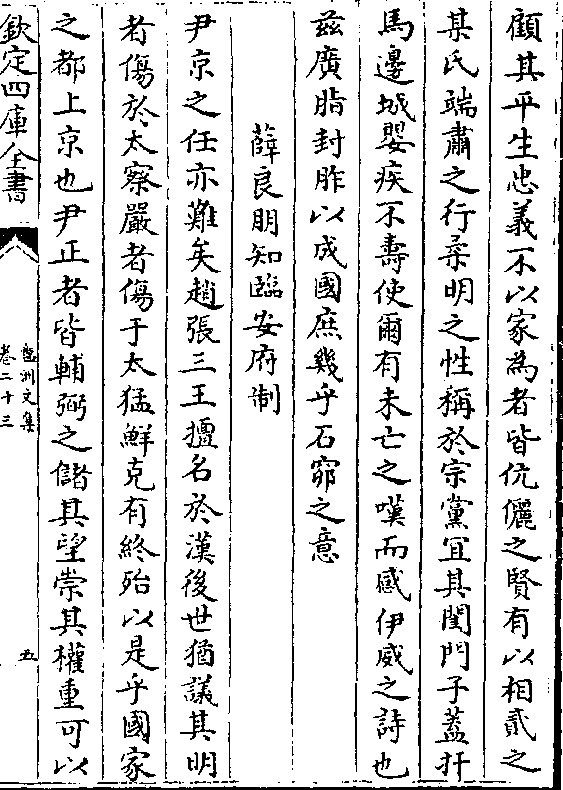 顧其平生忠義不以家為者皆伉儷之賢有以相貳之
某氏端肅之行柔明之性稱於宗黨冝其閨門子蓋扞
馬邊城嬰疾不壽使爾有未亡之嘆而感伊威之詩也
兹廣脂封胙以成國庶幾乎石窌之意
薛良朋知臨安府制
尹京之任亦難矣趙張三王擅名於漢後世猶議其明
者傷於太察嚴者傷于太猛鮮克有終殆以是乎國家
之都上京也尹正者皆輔弼之儲其望崇其權重可以
欽定四庫全書
盤洲文集
卷二十三
五